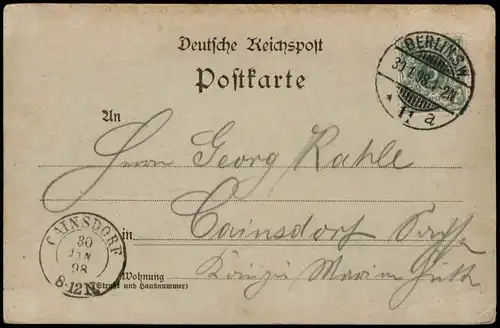 Deutsche Reichspost
Postkarte
BERLIN S.W.
11 a
An
Herrn Georg Rahle
in Cainsdorf
CAINSDORF
30
JAN
98
8-12N
Wohnung
(Straße und Hausnummer)
Königin Marien Hütte